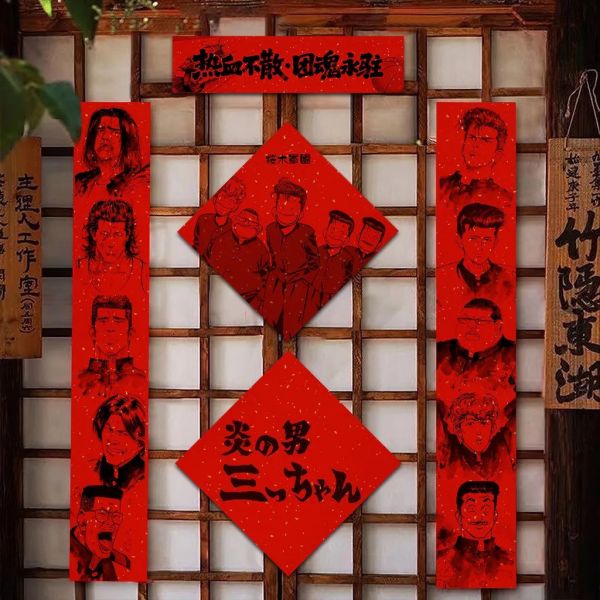 热血不散·团魂永驻
桜木軍団
炎の男
三っちゃん
主理人工作室
竹隐東湖